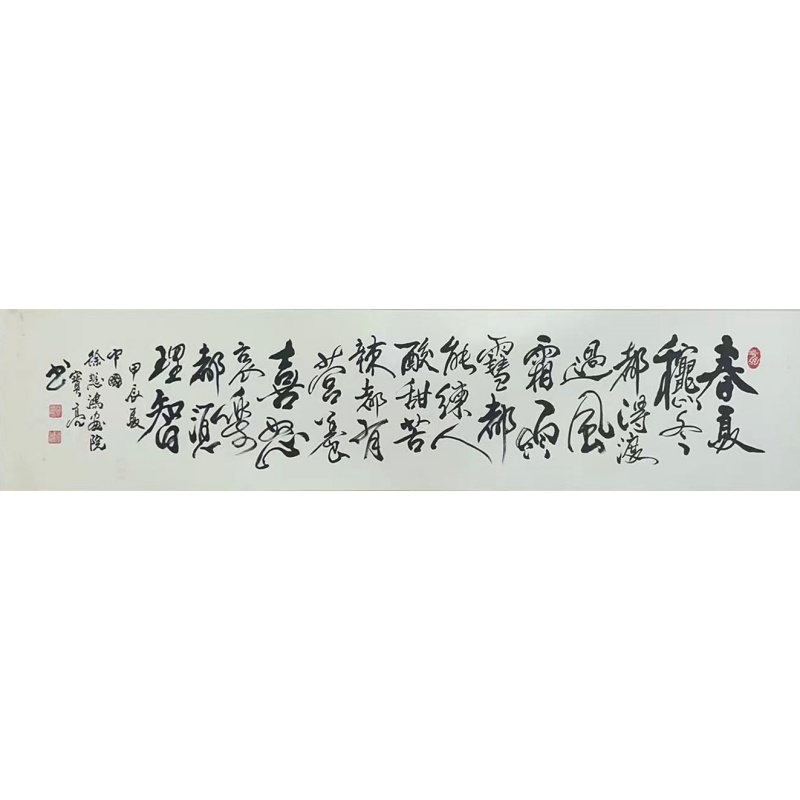 春夏
穐冬
都得渡
過風
霜雨
雪都
能練人
酸甜苦
辣都有
营養
喜怒
哀樂
都須
理智
甲辰夏
中國
徐悲鴻画院
寶亮
书